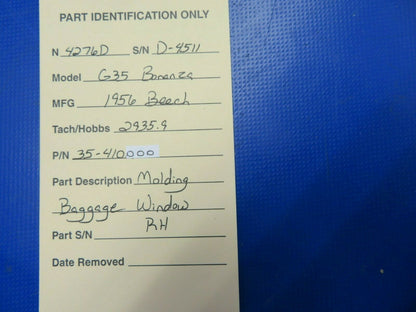 PART IDENTIFICATION ONLY
N 4276D S/N D-4511
Model G35 Bonanza
MFG 1956 Beech
Tach/Hobbs 2935.9
P/N 35-410000
Part Description Molding
Baggage Window
RH
Part S/N
Date Removed